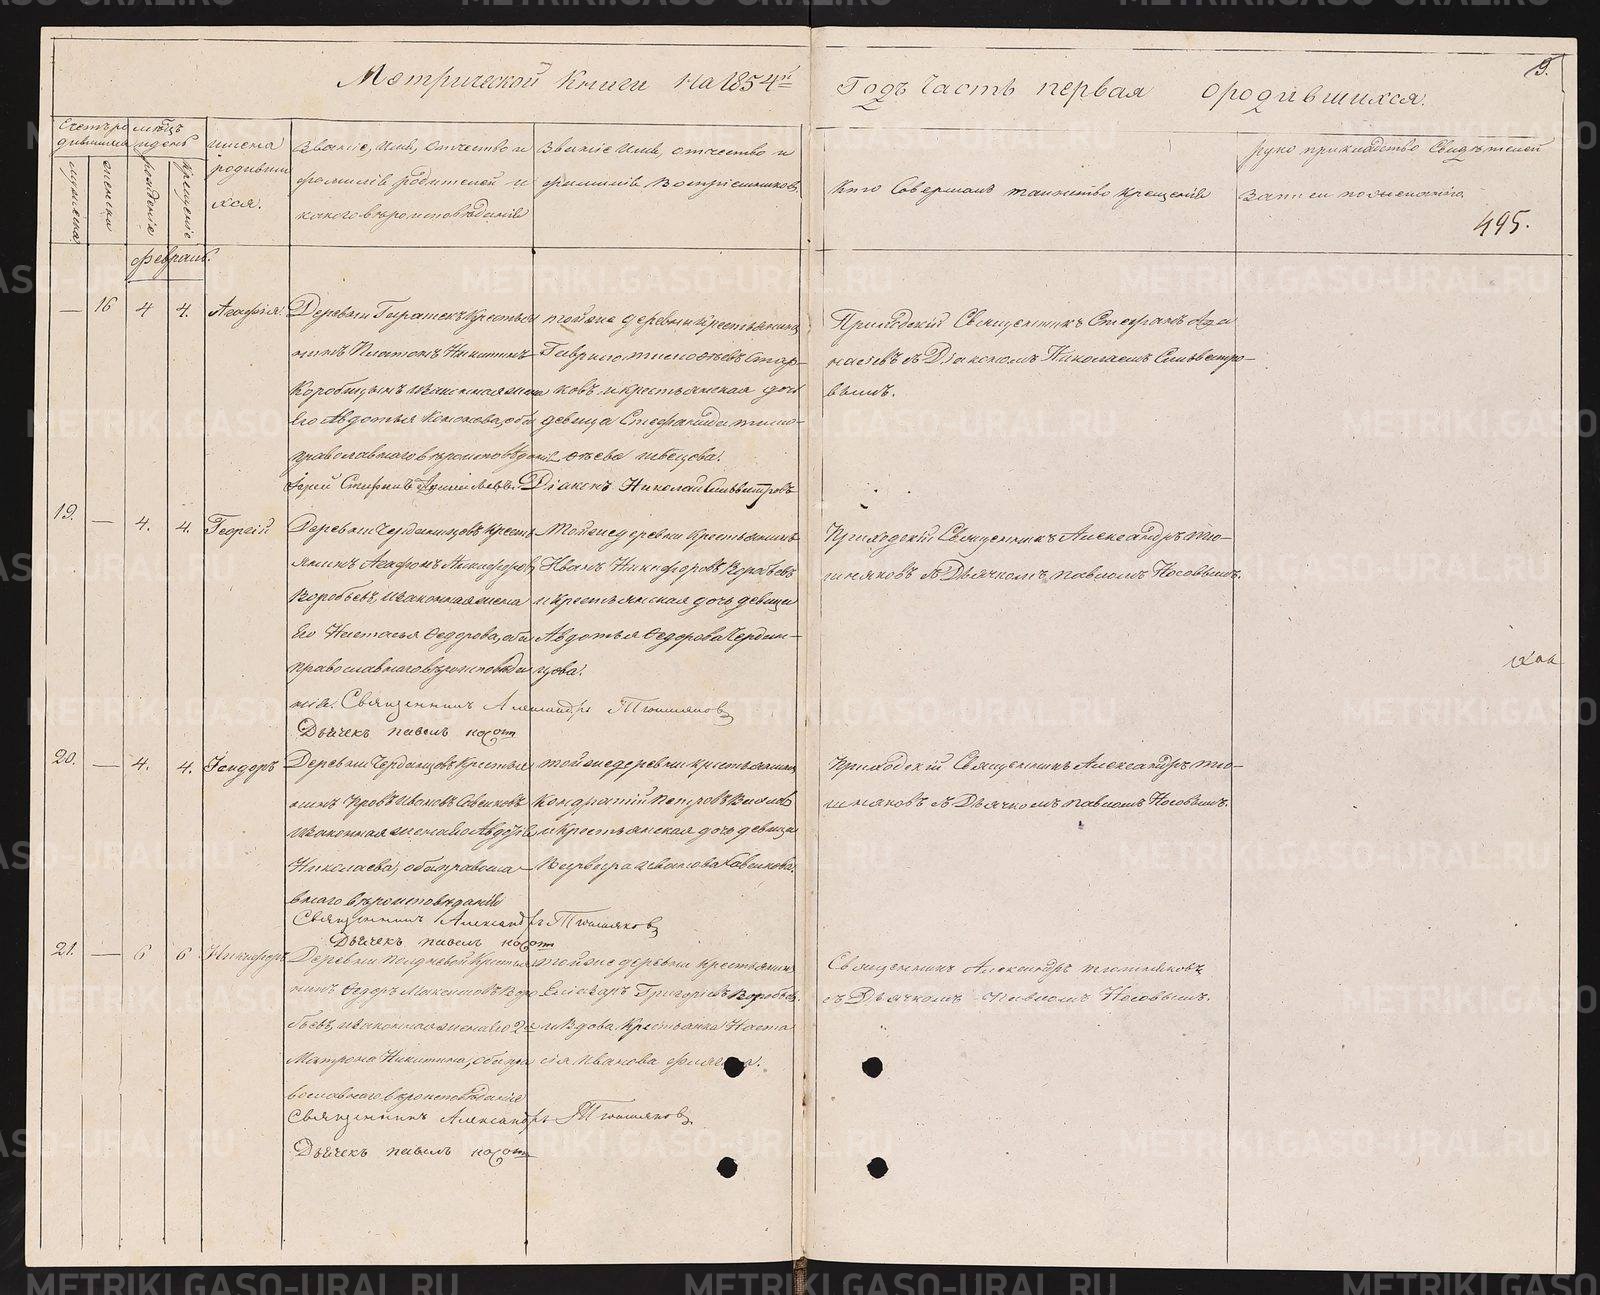 Метрической Книги на 1854й
Годъ Часть первая
о родившихся.
9.
Счетъ родившихся
мѣсяцъ и день
мужеска
женска
рожденіе
крещеніе
имена родившихся.
Званіе, Имя, отчество и
фамилія родителей и
какого вѣроисповѣданія
Званіе Имя, отчество и
фамилія Воспріемниковъ
Кто Совершалъ таинство крещенія
руко прикладство Свидѣтелей
Записи по желанію.
495.
февраль.
— 16 4 4. Агафія.
Деревни Крестья
нинъ Платонъ Никитинъ
Коробицынъ изаконная жена
Его Авдотья Кононова, оба
православнаго вѣроисповѣданія
той же деревни крестьянинъ
Гаврило тимофѣевъ
ковъ и крестьянская дочь
девица Стефанида тимо-
фѣева швецова.
Діаконъ Николай Сильвестровъ
Приходскій Священникъ Стефанъ
съ Діакономъ Николаемъ Сильвестро-
вымъ.
19. — 4. 4. Георгій
Деревни Черданцовъ кресть
янинъ Агафонъ Никифоровъ
Воробьевъ, изаконная жена
Его Настасья Ѳедорова, оба
православнаго вѣроисповѣда
нія. Священникъ Александръ Тюшняковъ
Дьячекъ павелъ носовъ
Той же деревни крестьянинъ
Иванъ Никифоровъ Воробьевъ
и крестьянская дочь девица
Авдотья Ѳедорова Чердан-
цова.
Приходскій Священникъ Александръ тю-
шняковъ съ Дьячкомъ павломъ Носовымъ.
20. — 4. 4.
Деревни Черданцовъ Крестья
нинъ
изаконная жена его
Николаева, оба правосла
внаго вѣроисповеданія
Священникъ Александръ Тюшняковъ
Дьячекъ павелъ носовъ
той же деревни крестьянинъ
Кондратій петровъ
и крестьянская дочь девица
Иванова
Приходскій Священникъ Александръ тю-
шняковъ съ Дьячкомъ павломъ Носовымъ.
21. — 6 6 Никифоръ
Деревни Крестья
нинъ Ѳедоръ Максимовъ Воро
бьевъ, изаконная жена его 2я
Матрона Никитина, оба пра
вославнаго вѣроисповѣданія
Священникъ Александръ Тюшняковъ
Дьячекъ павелъ носовъ
той же деревни крестьянинъ
Елизаръ Григорьевъ Воробьевъ.
и Вдова Крестьянка Наста
сія Иванова
Священникъ Александръ тюшняковъ
съ Дьячкомъ павломъ Носовымъ.
METRIKI.GASO-URAL.RU